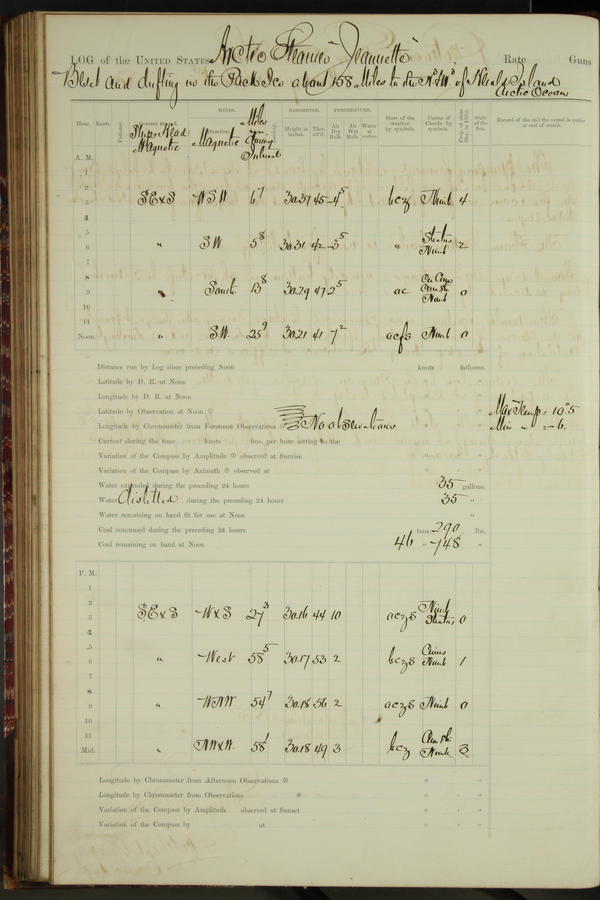 LOG of the UNITED STATES Arctic Steamer "Jeannette" Rate Guns
Beset and drifting in the Pack Ice about 158 Miles to the N°&W° of Herald Island
Arctic Ocean
WINDS. BAROMETER. TEMPERATURE.
Hour. Knots. Fathoms. Courses steered. Direction. Height in inches. Ther. att'd. Air Dry Bulb. Air Wet Bulb. Water at surface. State of the weather by symbols. Forms of Clouds by symbols. Prop. of clear sky, in 10ths. State of the Sea. Record of the sail the vessel is under at end of watch.
Ship's Head Magnetic Magnetic Miles
A. M.
1
2
3 SExS WSW 6⁷ 30.37 45 -4⁵ bcz Nimb 4
4
5
6 " SW 5⁸ 30.31 42 -3⁵ " Stratus Nimb 2
7
8
9 " South 13⁸ 30.29 47 2⁵ ac Nimb 0
10
11
Noon. " SW 25⁹ 30.21 41 7² acfs Nimb 0
Distance run by Log since preceding Noon knots fathoms.
Latitude by D. R. at Noon
Longitude by D. R. at Noon
Latitude by Observation at Noon Max Temp = 10°5
Longitude by Chronometer from Forenoon Observations No observations Min " = -6.
Current during the time knots fms. per hour setting to the
Variation of the Compass by Amplitude observed at Sunrise
Variation of the Compass by Azimuth observed at
Water expended during the preceding 24 hours 35 gallons.
Water distilled during the preceding 24 hours 35 "
Water remaining on hand fit for use at Noon "
Coal consumed during the preceding 24 hours tons, 290 lbs.
Coal remaining on hand at Noon 46 " -148 "
P. M.
1
2
3 SExS WxS 27³ 30.16 44 10 aczs Nimb Stratus 0
4
5
6 " West 58⁵ 30.17 53 2 bczs Cirrus Nimb 1
7
8
9 " WNW 54⁷ 30.18 56 2 aczs Nimb 0
10
11
Mid. " NWxW 58¹ 30.18 49 3 bcz Nimb 3
Longitude by Chronometer from Afternoon Observations
Longitude by Chronometer from Observations
Variation of the Compass by Amplitude observed at Sunset
Variation of the Compass by at